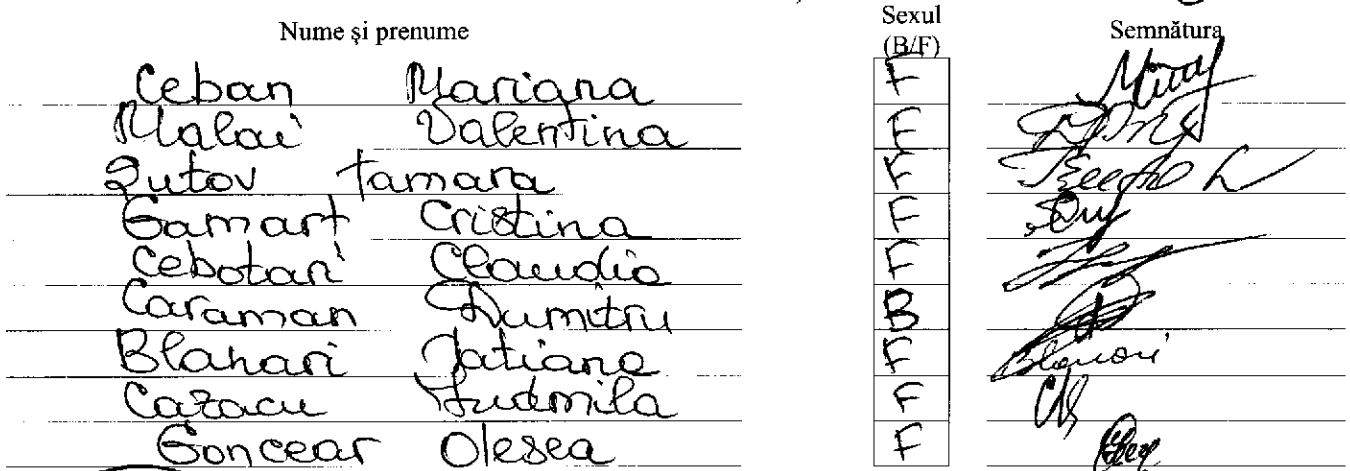 Nume și prenume Sexul (B/F) Semnătura
Ceban Mariana F
Malai Valentina F
Tamara F
Gamart Cristina F
Cebotari Claudia F
Caraman Dumitru B
Blanari Tatiana F Blanari
Cazacu Ludmila F
Goncear Olesea F